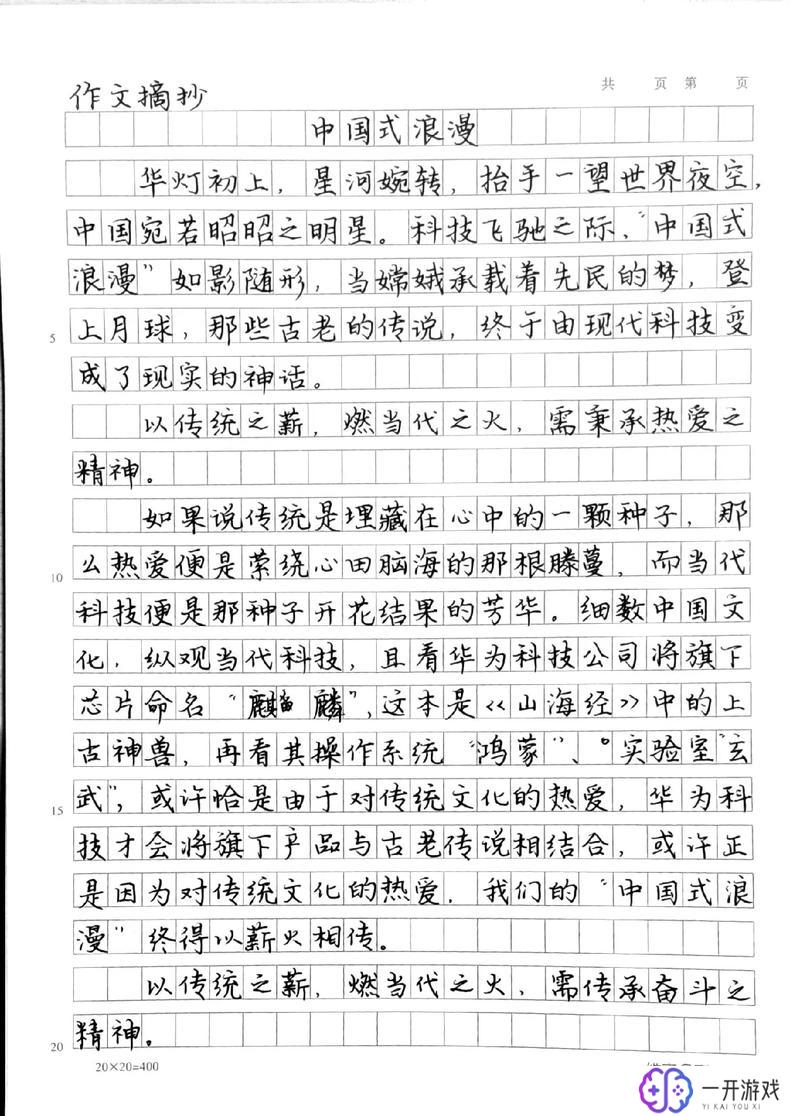 共 页 第 页
作文摘抄
中国式浪漫
华灯初上，星河婉转，抬手一望世界夜空，
中国宛若昭昭之明星。科技飞驰之际，“中国式
浪漫”如影随形，当嫦娥承载着先民的梦，登
5 上月球，那些古老的传说，终于由现代科技变
成了现实的神话。
以传统之薪，燃当代之火，需秉承热爱之
精神。
如果说传统是埋藏在心中的一颗种子，那
10 么热爱便是萦绕心田脑海的那根滕蔓，而当代
科技便是那种子开花结果的芳华。细数中国文
化，纵观当代科技，且看华为科技公司将旗下
芯片命名“麒麟”，这本是《山海经》中的上
古神兽，再看其操作系统“鸿蒙”、“实验室“玄
15 武”，或许恰是由于对传统文化的热爱，华为科
技才会将旗下产品与古老传说相结合，或许正
是因为对传统文化的热爱，我们的“中国式浪
漫”终得以薪火相传。
以传统之薪，燃当代之火，需传承奋斗之
20 精神。
20×20=400
一开游戏
YI KAI YOU XI